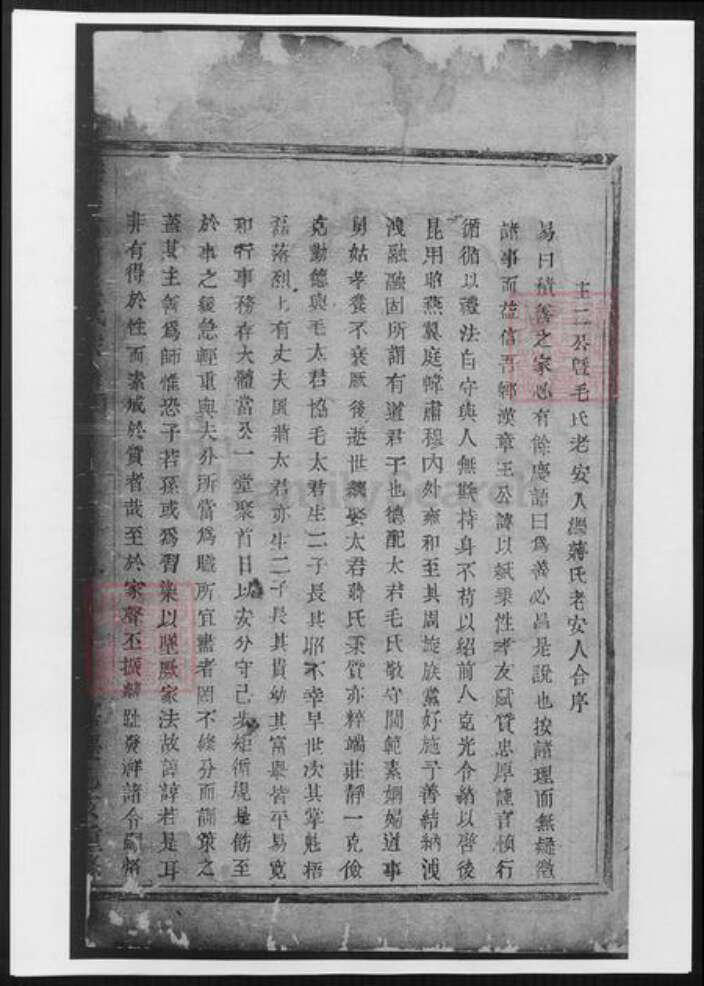 王二公暨毛氏老安人繼蔣氏老安人合序
易曰積善之家必有餘慶語曰為善必昌是說也按諸理而無繾徵
諸事而益信吾鄉漢章王公諱以斌秉性孝友賦質忠厚謹言慎行
循循以禮法自守與人無欺持身不苟以紹前人克光令緒以啓後
昆用昭燕翼庭幃肅穆內外雍和至其周旋族黨好施予善結納洩
洩融融固所謂有道君子也德配太君毛氏敬守閫範素嫻婦道事
舅姑孝養不衰厥後逝世繼娶太君蔣氏秉質亦粹端莊靜一克儉
克勤德與毛太君協毛太君生二子長其昭不幸早世次其掌魁梧
磊落烈上有丈夫風蔣太君亦生二子長其貴幼其富舉皆平易寬
和行事務存大體當公一堂聚首日以安分守己步矩循規是飭至
於事之緩急輕重與夫分所當為職所宜盡者罔不條分而訓策之
蓋其主善為師惟恐子若孫或為習染以墜厥家法故諄諄若是耳
非有得於性而素成於質者哉至於家聲丕振麟趾發祥諸令嗣
FamilySearch